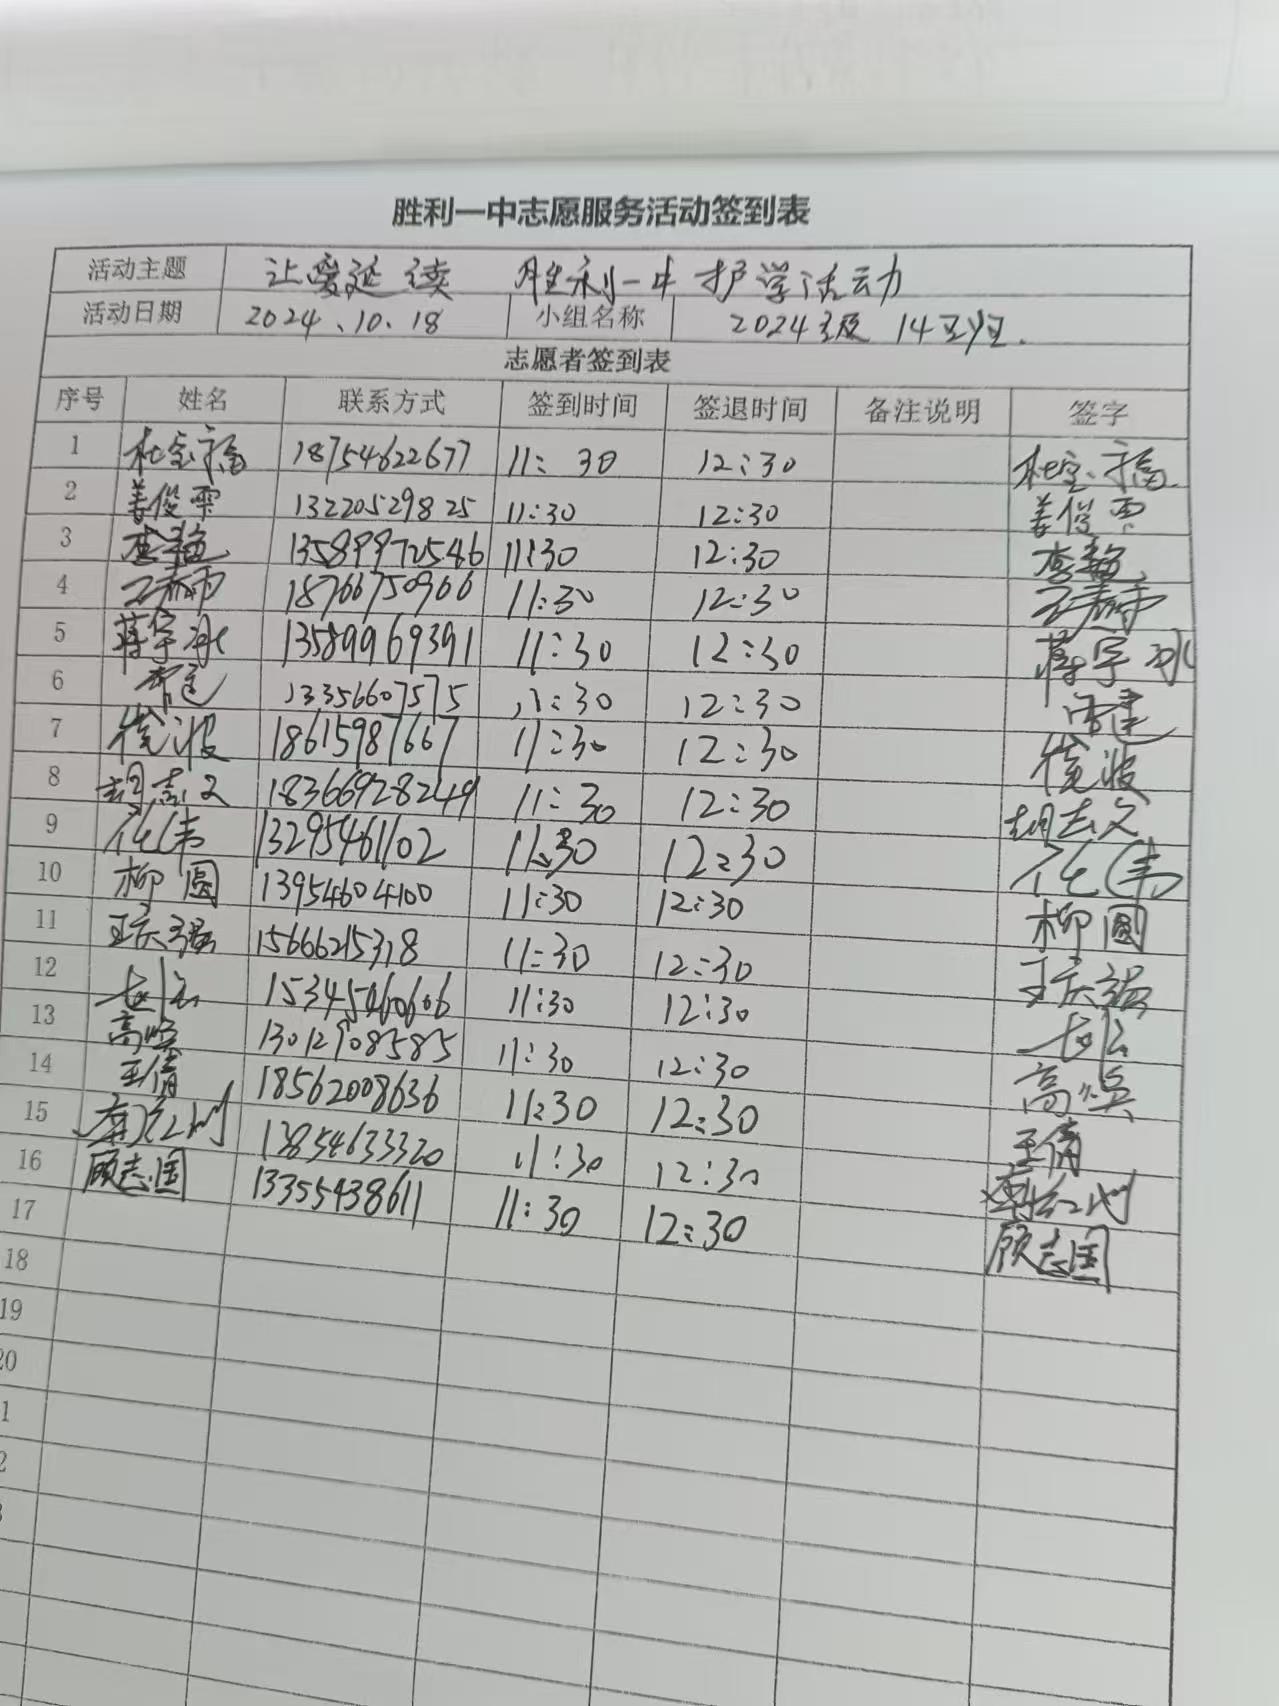 胜利一中志愿服务活动签到表
活动主题 让爱延续 胜利一中护学活动
活动日期 2024.10.18 小组名称 2024级 14班.
志愿者签到表
序号 姓名 联系方式 签到时间 签退时间 备注说明 签字
1 杜宝福 18754622677 11:30 12:30 杜宝福
2 姜俊霞 13220529825 11:30 12:30 姜俊霞
3 李艳 13589972546 11:30 12:30 李艳
4 18766750966 11:30 12:30
5 蒋宇冰 13589969391 11:30 12:30 蒋宇冰
6 13356607575 11:30 12:30
7 波 18615987667 11:30 12:30 波
8 胡志文 18366928249 11:30 12:30 胡志文
9 伟 13295461102 11:30 12:30 伟
10 柳圆 13954604100 11:30 12:30 柳圆
11 王庆强 15666215318 11:30 12:30 王庆强
12 15345460606 11:30 12:30
13 高焕 13012908585 11:30 12:30 高焕
14 王倩 18562008636 11:30 12:30 王倩
15 13854633320 11:30 12:30
16 顾志国 13355438611 11:30 12:30 顾志国
17
18
19
20
1
2
3